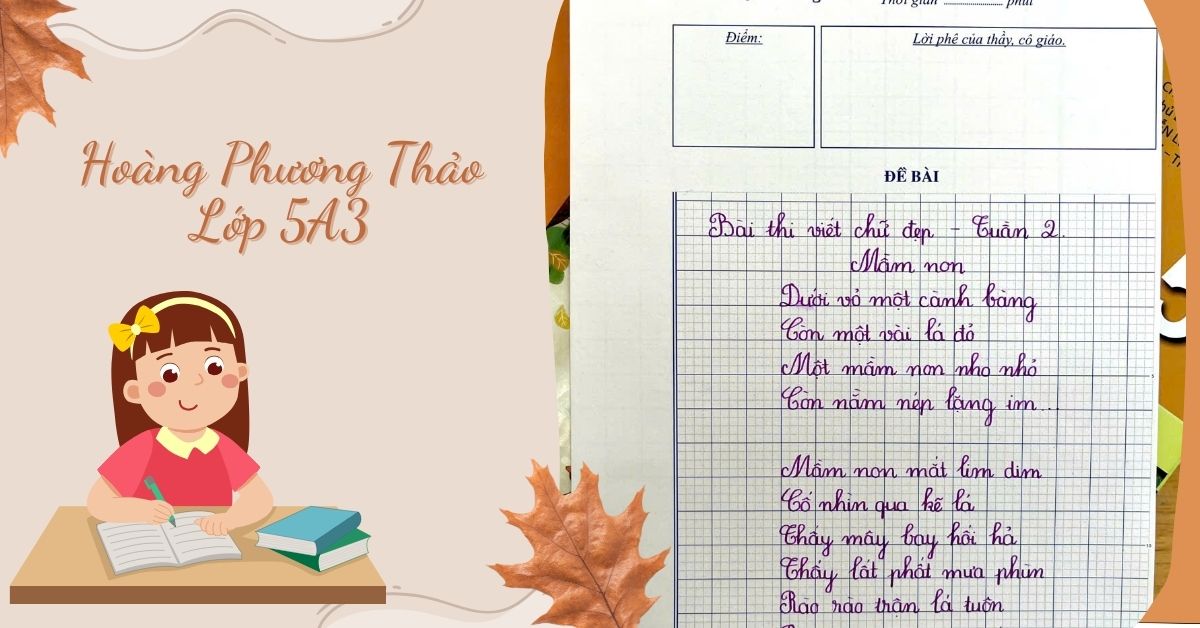 Hoàng Phương Thảo
Lớp 5A3
Thời gian ................ phút
Điểm:
Lời phê của thầy, cô giáo.
ĐỀ BÀI
Bài thi viết chữ đẹp - Tuần 2.
Mầm non
Dưới vỏ một cành bàng
Còn một vài lá đỏ
Một mầm non nho nhỏ
Còn nằm nép lặng im...
Mầm non mắt lim dim
Cố nhìn qua kẽ lá
Thấy mây bay hối hả
Thấy lất phất mưa phùn
Rào rào trận lá tuôn